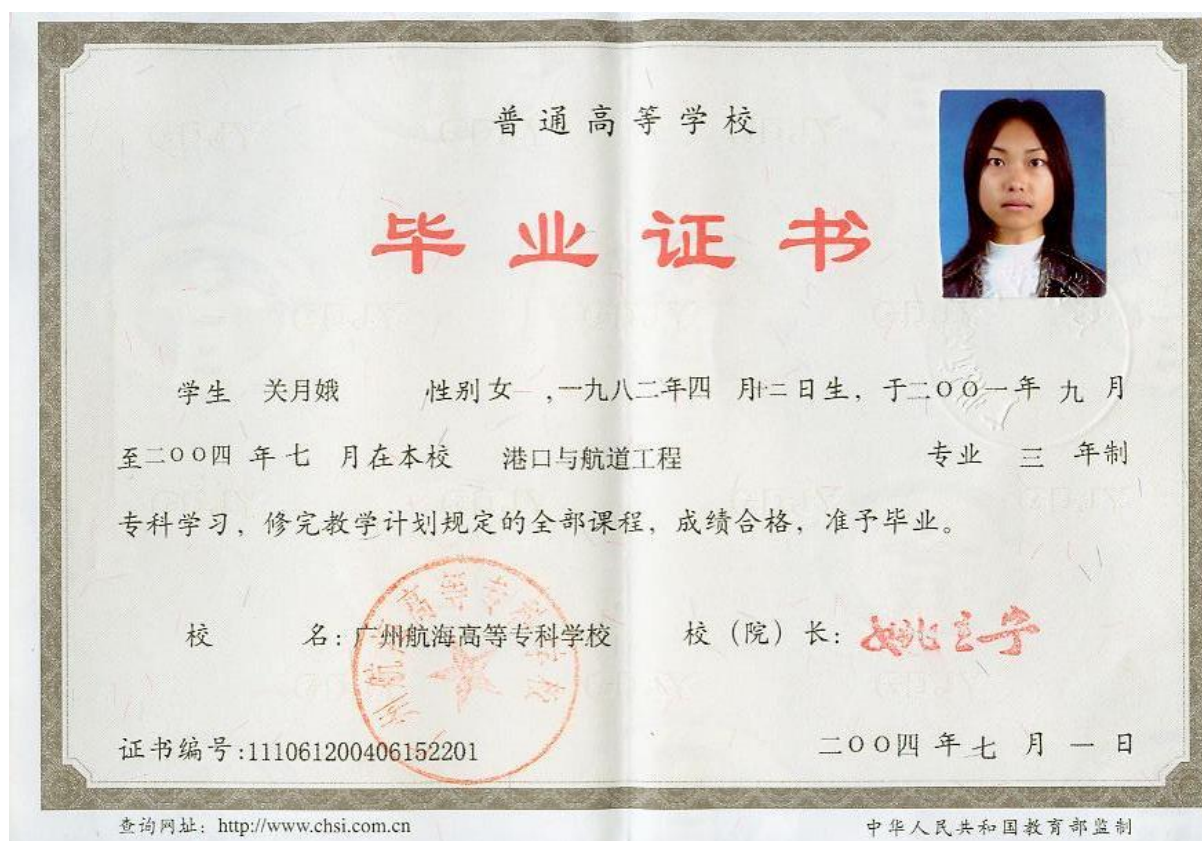 普通高等学校
毕业证书
学生 关月娥 性别 女 ,一九八二年四 月十二日生, 于二〇〇一年 九 月
至二〇〇四 年 七 月在本校 港口与航道工程 专业 三 年制
专科学习, 修完教学计划规定的全部课程, 成绩合格, 准予毕业。
校 名: 广州航海高等专科学校 校 (院) 长:
证书编号:111061200406152201 二〇〇四 年 七 月 一 日
查询网址: http://www.chsi.com.cn 中华人民共和国教育部监制